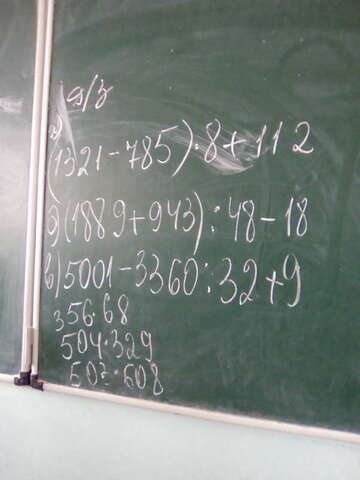 д/з
а)
(1321-785):8+112
б)(1889+943):48-18
в)5001-3360:32+9
356·68
504·329
503·608